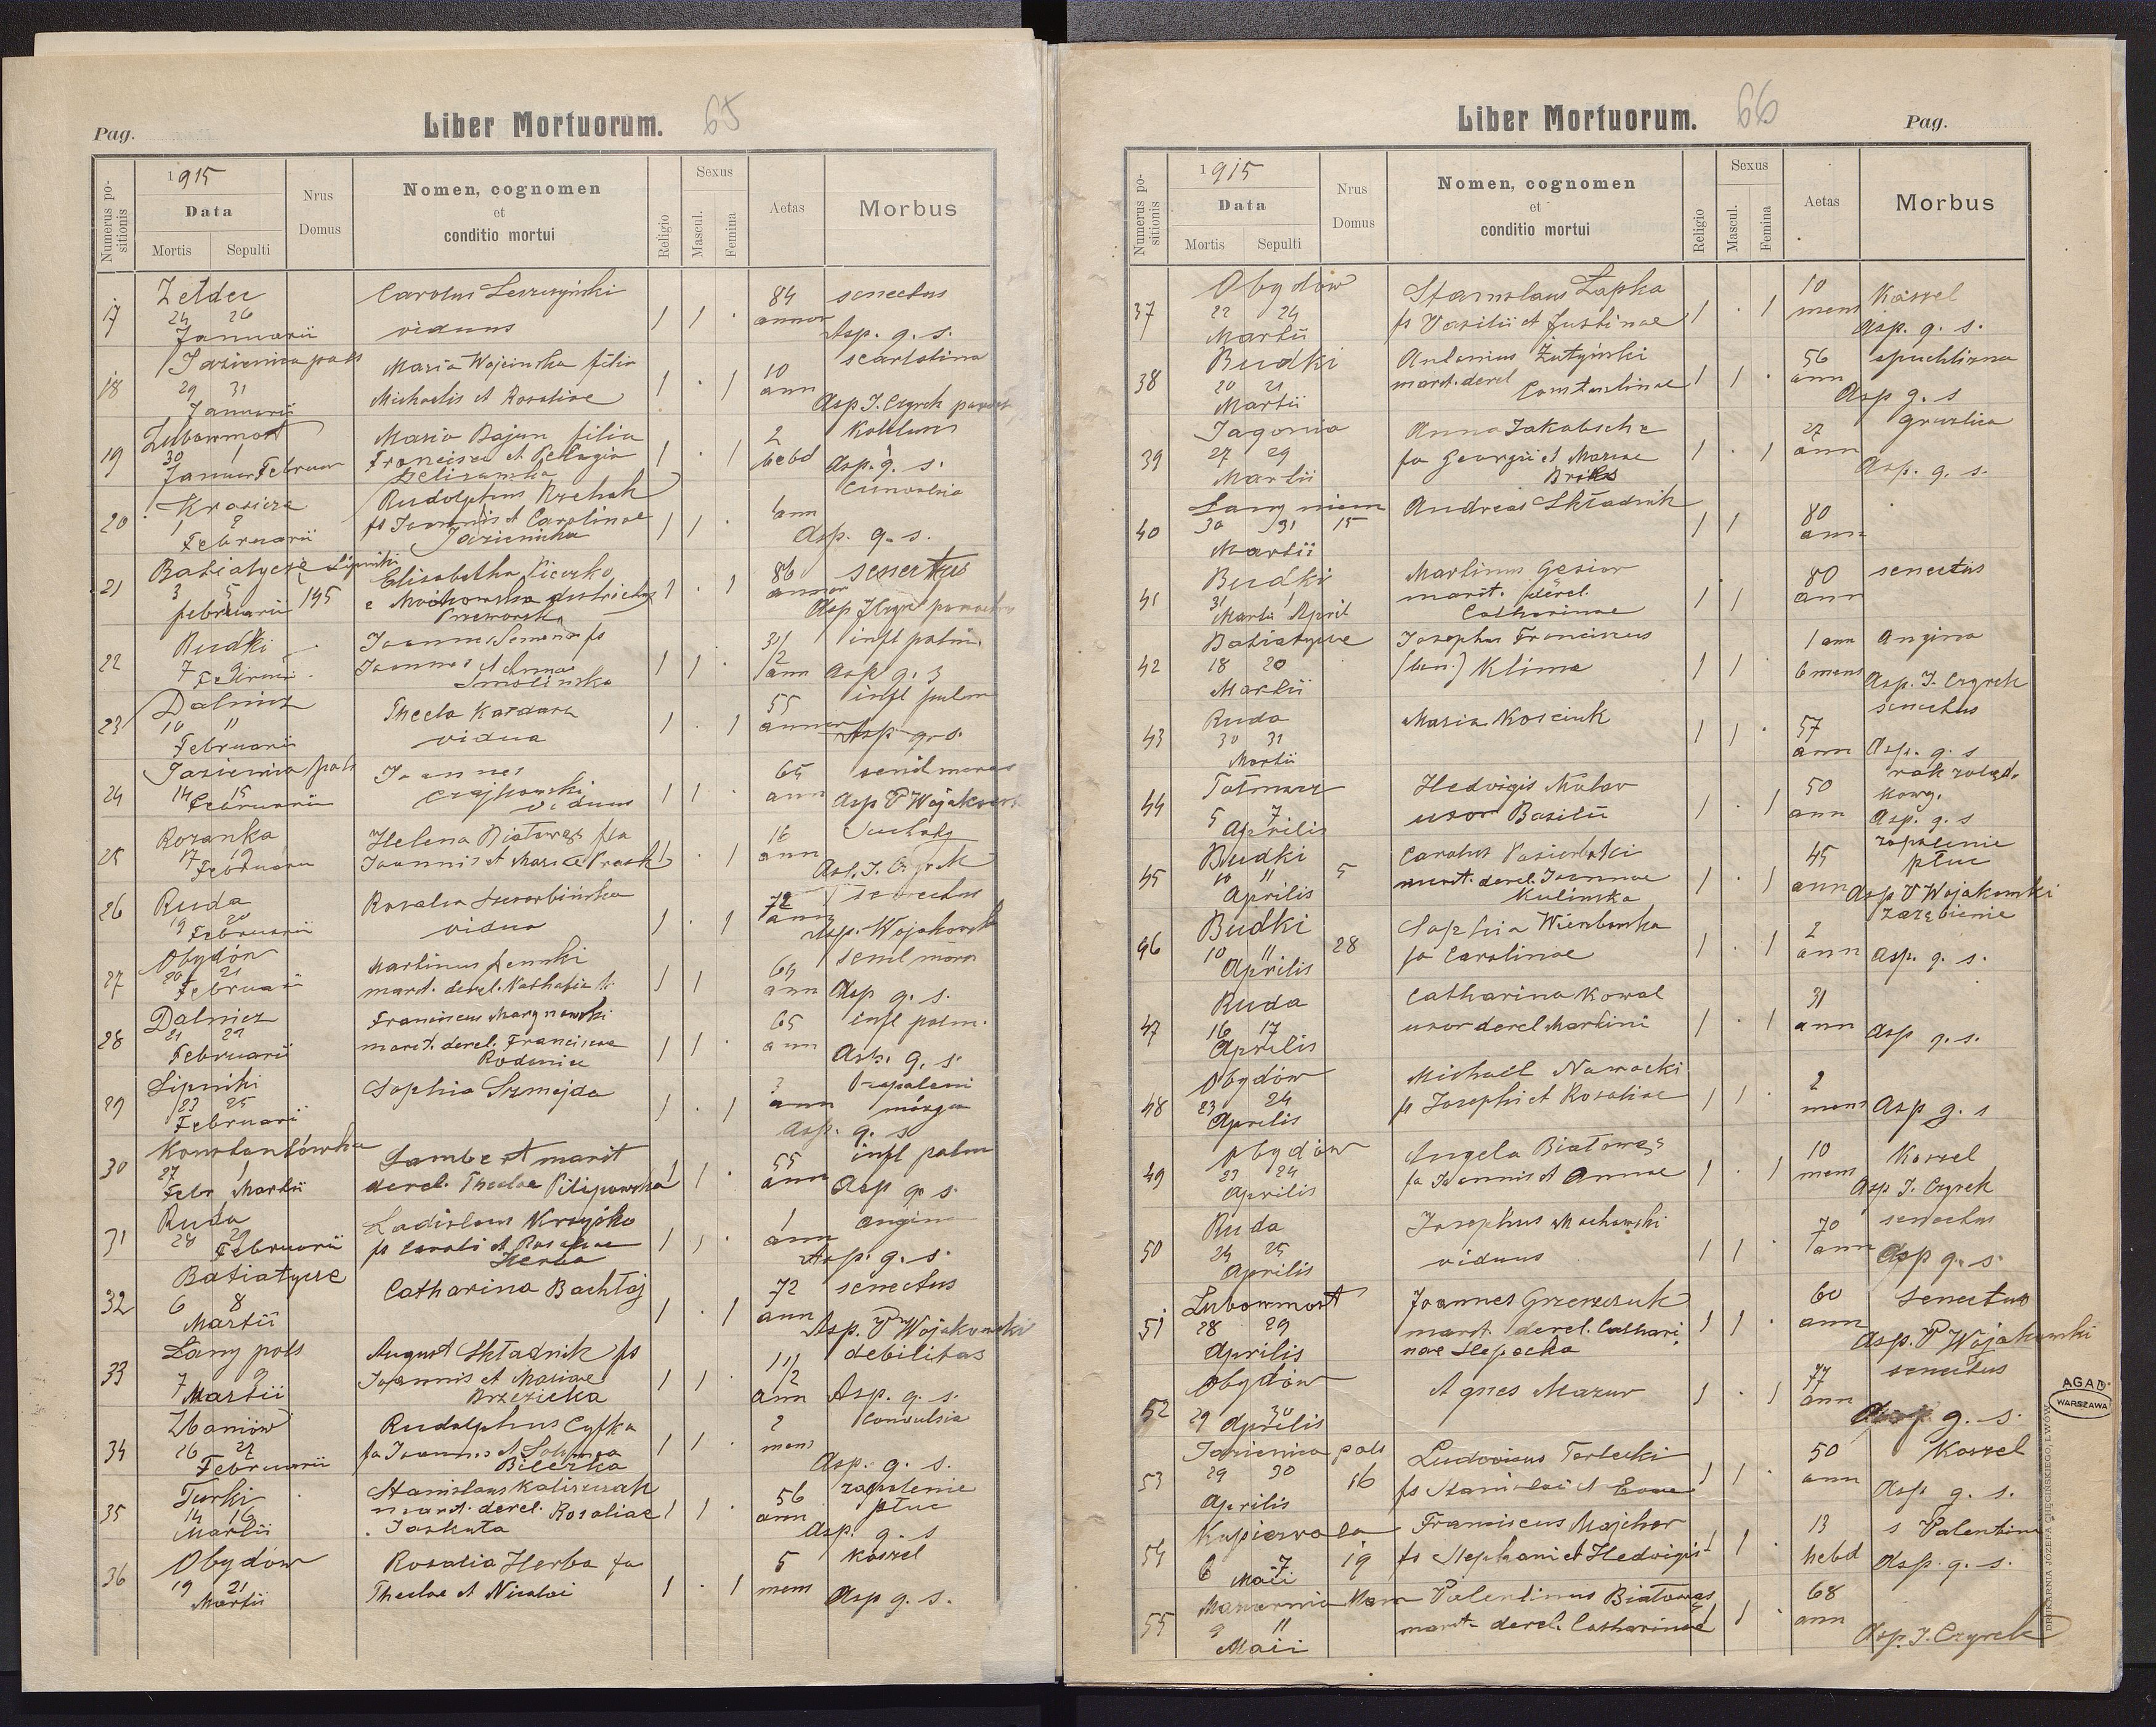 Pag.
Liber Mortuorum. 65
Numerus positionis
1915
Data
Mortis Sepulti
Nrus Domus
Nomen, cognomen et conditio mortui
Religio
Sexus
Mascul. Femina
Aetas
Morbus
17 Zeldec Carolus Leszczyński 84 senectus
24 26 Januarii viduus 1 1 · annor Asp. g. s.
18 Jazienica pols Maria Wojcinska filia 10 scarlatina
29 31 Januarii Michaelis et Rosaliae 1 · 1 ann Asp J. Czyrek
19 Lubowmost Maria Bajan filia 2
30 1 Januar Februar Francisca et Pelagia 1 · 1 hebd Asp. g. s.
20 Krasicze Rudolphus Rzehak
1 2 Februarii fs Joannis et Carolinae 1 1 · ann Asp. g. s.
Jazienicka
21 Batiatycze Lipniki Elisabetha 86 senectus
3 5 februarii 145 e districtus 1 · 1 annor Asp
22 Budki Joannes fs 3 1/2 infl palm.
7 9 Joannes et Annae 1 1 · ann Asp g. s
Smolinska
23 Dalnicz Thecla Kardasz 55 infl pulm
10 11 Februarii vidua 1 · 1 annor Asp g. s.
24 Jazienica pols Joannes 65
14 15 Februarii Czajkowski viduus 1 1 · ann Asp P Wojakowski
25 Rozanka Helena Białowąs fla 16 Suchoty
17 19 Februarii Joannis et Mariae 1 · 1 ann Asp. J. Czyrek
26 Ruda Rosalia 72 senectus
19 20 Februarii vidua 1 · 1 ann Asp. Wojakowski
27 Obydów Martinus 64
20 21 Februarii marit. derel. 1 1 ann Asp g. s.
28 Dalnicz Franciscus 65 infl palm.
21 Februarii marit. derel. Franciscae 1 1 · ann Asp. g. s.
29 Lipniki Sophia Szmajda mózgu
23 25 Februarii 1 · 1 ann Asp. g. s
30 Konstantówka Lambert marit 55 infl palm
27 1 Febr Martii derel. Theclae Pilipowska 1 1 · ann Asp g. s.
31 Ruda Ladislaus Krzyśko 1 angina
28 29 Februarii fs Caroli et Rosaliae 1 1 · ann Asp. g. s.
Herba
32 Batiatycze Catharina Bachtaj 72 senectus
6 8 Martii 1 · 1 ann Asp. P Wojakowski
33 Łany pols August Składnik fs 1 1/2 debilitas
7 9 Martii Joannis et Mariae 1 1 · ann Asp. g. s.
Brzezicka
34 Zbaniów Rudolphus Cyfka 2 convulsia
26 27 Februarii fs Joannis et 1 1 · mens Asp. g. s.
35 Turki Stanislaus Kaliszczak 56 zapalenie
14 16 Martii marit. derel. Rosaliae 1 1 · ann płuc
Jaskuta Asp. g. s
36 Obydów Rosalia Herba fa 5 koszel
19 21 Martii Theclae et Nicolai 1 · 1 mens Asp g. s.
Liber Mortuorum. 66
Pag.
Numerus positionis
1915
Data
Mortis Sepulti
Nrus Domus
Nomen, cognomen et conditio mortui
Religio
Sexus
Mascul. Femina
Aetas
Morbus
37 Obydów Stanislaus Łapka 10 Koszel
22 24 Martii fs Vasilii et Justinae 1 · 1 mens Asp. g. s.
38 Budki Antonius Żutyński 56 spuchlizna
20 21 Martii marit. derel Constantinae 1 1 · ann Asp g. s
39 Jagonia Anna Jakobsche 27 gruzlica
27 29 Martii fa Georgii et Mariae 1 · 1 ann Asp. g. s.
40 Łany niem Andreas Składnik 80
30 31 15 Martii 1 1 ann
41 Budki Martinus Gąsior 80 senectus
31 1 Martii April marit. derel. 1 1 ann
Catharinae
42 Batiatycze Josephus Franciscus 1 ann Angina
18 20 Martii (ben.) Klima 1 1 6 mens Asp. J. Czyrek
43 Ruda Maria Kosciuk 57 senectus
30 31 Martii 1 1 · ann Asp. g. s
44 Tatmarz Hedvigis Malar 50 rak żołąd.
5 7 Aprilis uxor Basilii 1 · 1 ann Asp. g. s
45 Budki Carolus 45 zapalenie płuc
10 11 5 Aprilis marit. derel. Joannae 1 · 1 ann Asp P Wojakowski
Kulinska
46 Budki Sophia Wierbowska 2 zaziębienie
10 11 28 Aprilis fa Carolinae 1 · 1 ann Asp. g. s.
47 Ruda Catharina Kowal 31
16 17 Aprilis uxor derel Martini 1 · 1 ann Asp g. s.
48 Obydów Michael Nawacki 2
23 24 Aprilis fs Josephi et Rosaliae 1 1 · mens Asp g. s
49 Obydów Angela Białowąs 10 Koszel
23 24 Aprilis fa Joannis et Annae 1 · 1 mens Asp J. Czyrek
50 Ruda Josephus Machowski 70 senectus
24 25 Aprilis viduus 1 1 · ann Asp g. s.
51 Lubowmost Joannes Grzeszczuk 60 Senectus
28 29 Aprilis marit. derel. Cathari 1 1 · ann Asp. P Wojakowski
nae Slepecka
52 Obydów Agnes Mazur 77 senectus
29 30 Aprilis 1 · 1 ann Asp g. s.
53 Jazienica pols Ludovicus Terlecki 50 Koszel
29 30 16 Aprilis fs Stanislai et Evae 1 1 · ann Asp g. s.
54 Franciscus Majcher 13 s Valentina
6 7 19 Maii fs Stephani et Hedvigis 1 1 · hebd Asp. g. s.
55 Valentinus Białowąs 68
9 11 Maii marit- derel. Catharinae 1 1 · ann Asp. J. Czyrek
AGAD
WARSZAWA
DRUKARNIA JÓZEFA CHĘCIŃSKIEGO, LWÓW